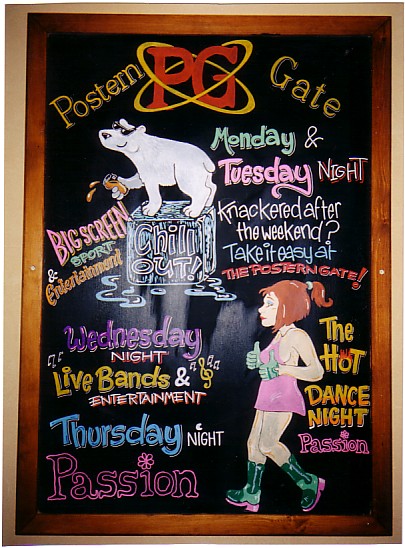 Postern PG Gate
Monday &
Tuesday NIGHT
Knackered after
the weekend?
Take it easy at
THE POSTERN GATE!
BIG SCREEN
SPORT
& Entertainment
Chill
OUT!
Wednesday
NIGHT
Live Bands &
ENTERTAINMENT
Thursday NIGHT
Passion
The
HOT
DANCE
NIGHT
Passion